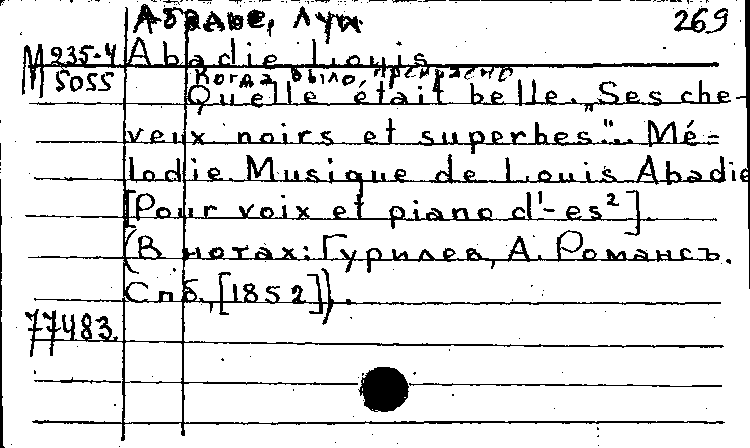 Абадье, Луи
269
М 235-4
5055
Abadie Louis
Когда было прекрасно
Quelle était belle. „Ses che-
veux noirs et superbes".. Mé=
lodie Musique de Louis Abadie
[Pour voix et piano d¹-es²].
(В нотах: Гурилев, А. Романсъ.
Спб., [1852]).
77483.